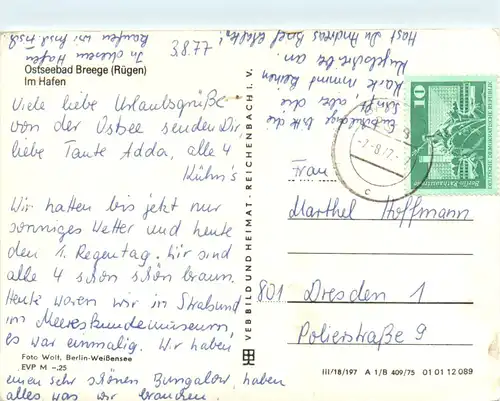 3.8.77
In diesem Hafen
kaufen wir Fisch
Ostseebad Breege (Rügen)
Im Hafen
Viele liebe Urlaubsgrüße
von der Ostsee senden Dir
liebe Tante Adda, alle 4
Kühn's
Wir hatten bis jetzt nur
sonniges Wetter und heute
den 1. Regentag. Wir sind
alle 4 schon schön braun.
Heute waren wir in Stralsund
im Meereskundemuseum,
es war einmalig. Wir haben
Foto Wolf, Berlin-Weißensee
EVP M –.25
einen sehr schönen Bungalow, haben
alles was wir brauchen.
Entschuldige bitte die
Schrift, aber die
Karte nimmt keinen
Kugelschreiber an.
Hast Du Andreas Brief erhalten?
VEB BILD UND HEIMAT · REICHENBACH I. V.
10
Berlin-Rathausstraße
-7.-8.77
c
Frau
Marthel Hoffmann
801 Dresden 1
Polierstraße 9
III/18/197 A 1/B 409/75 01 01 12 089